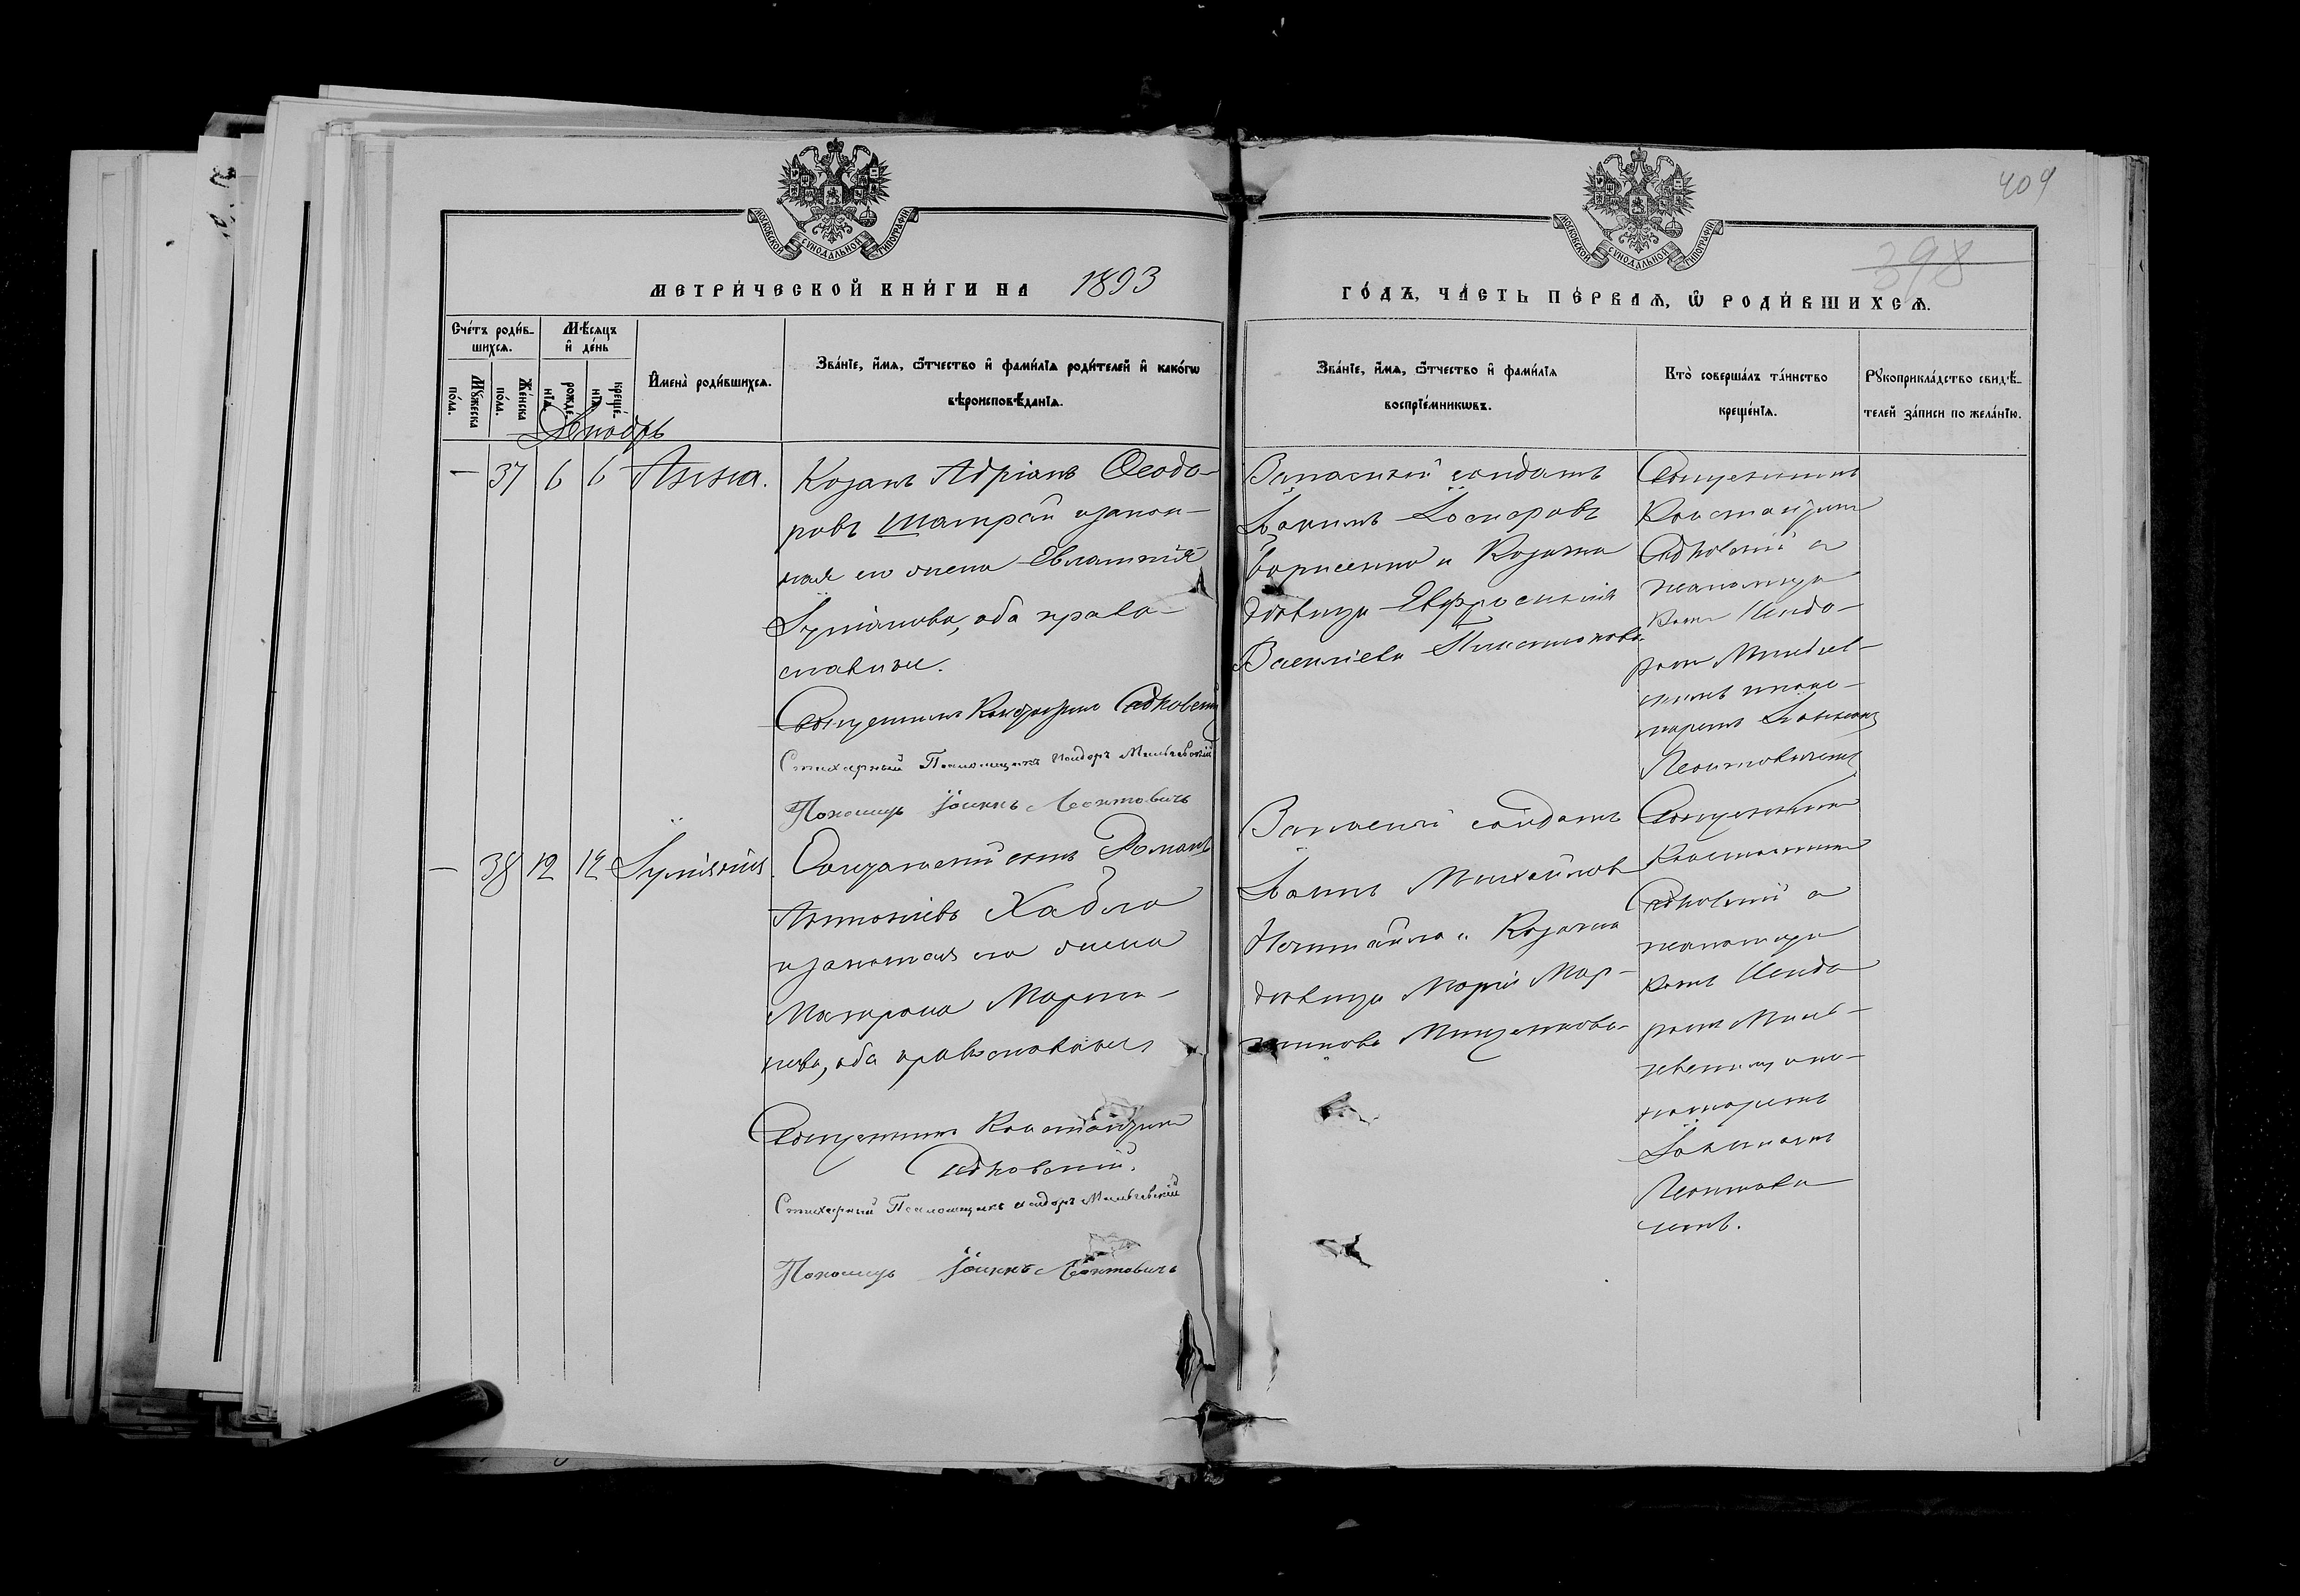 409
398
МОСКОВСКОЙ СѴНОДАЛЬНОЙ ТИПОГРАФІИ
МОСКОВСКОЙ СѴНОДАЛЬНОЙ ТИПОГРАФІИ
МЕТРИ́ЧЕСКОЙ КНИ́ГИ НА 1893
ГО́ДЪ, ЧА́СТЬ ПЕ́РВАѦ, Ѽ РОДИ́ВШИХСѦ.
Сче́тъ роди́в-
шихсѧ.
Мꙋ́жеска
по́ла.
Же́нска
по́ла.
Мѣ́сѧцъ
и҆ де́нь
рожде́-
нїѧ.
креще́-
нїѧ.
И҆мена̀ роди́вшихсѧ.
Зва́нїе, и҆́мѧ, ѻ҆́тчество и҆ фами́лїѧ роди́телей и҆ како́гѡ
вѣроисповѣ́данїѧ.
Зва́нїе, и҆́мѧ, ѻ҆́тчество и҆ фами́лїѧ
воспрїе́мникѡвъ.
Кто̀ соверша́лъ та́инство
креще́нїѧ.
Рꙋкоприкла́дство свидѣ́-
телей за́писи по жела́нїю.
Декабрь
— 37 6 6 Анна.
Козакъ Адріанъ Ѳеодо-
ровъ Шатрай и закон-
ная его жена Евлампія
, оба право-
славные.
Священникъ Константинъ Садковскій
Стихарный Псаломщикъ Исидоръ
Пономарь Іоаннъ Леонтовичъ
Запасный солдатъ
Іоакимъ
Борисенко и Козачка
девица Евфросинія
Василіева
Священникъ
Константинъ
Садковскій съ
псаломщи-
комъ Исидо-
ромъ
скимъ и поно-
маремъ Іоанномъ
Леонтовичемъ
— 38 12 12 Іуліанія.
Солдатскій сынъ Романъ
Антоніевъ Хабло
и законная его жена
Матрона Марти-
нова, оба православные
Священникъ Константинъ
Садковскій.
Стихарный Псаломщикъ Исидоръ
Пономарь Іоаннъ Леонтовичъ
Запасный солдатъ
Іоаннъ Михайловъ
и Козачка
девица Марія Мар-
тинова
Священникъ
Константинъ
Садковскій съ
псаломщи-
комъ Исидо-
ромъ
пономаремъ
Іоанномъ
Леонтови-
чемъ.